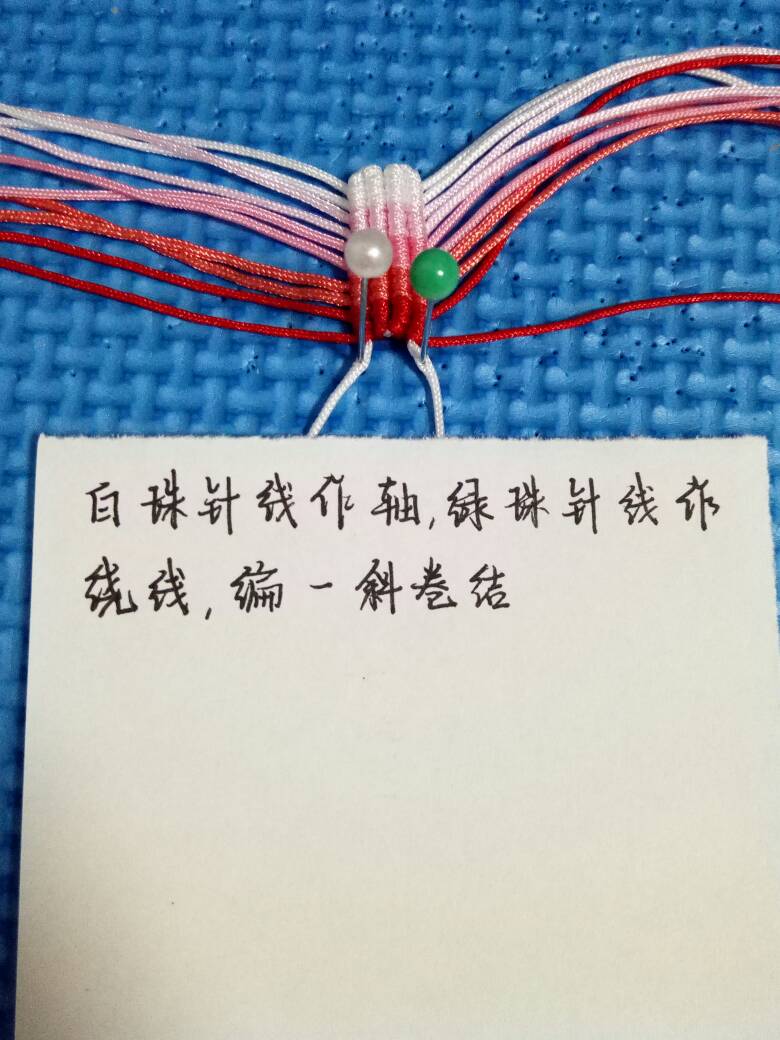 白珠针线作轴,绿珠针线作
绕线,编一斜卷结